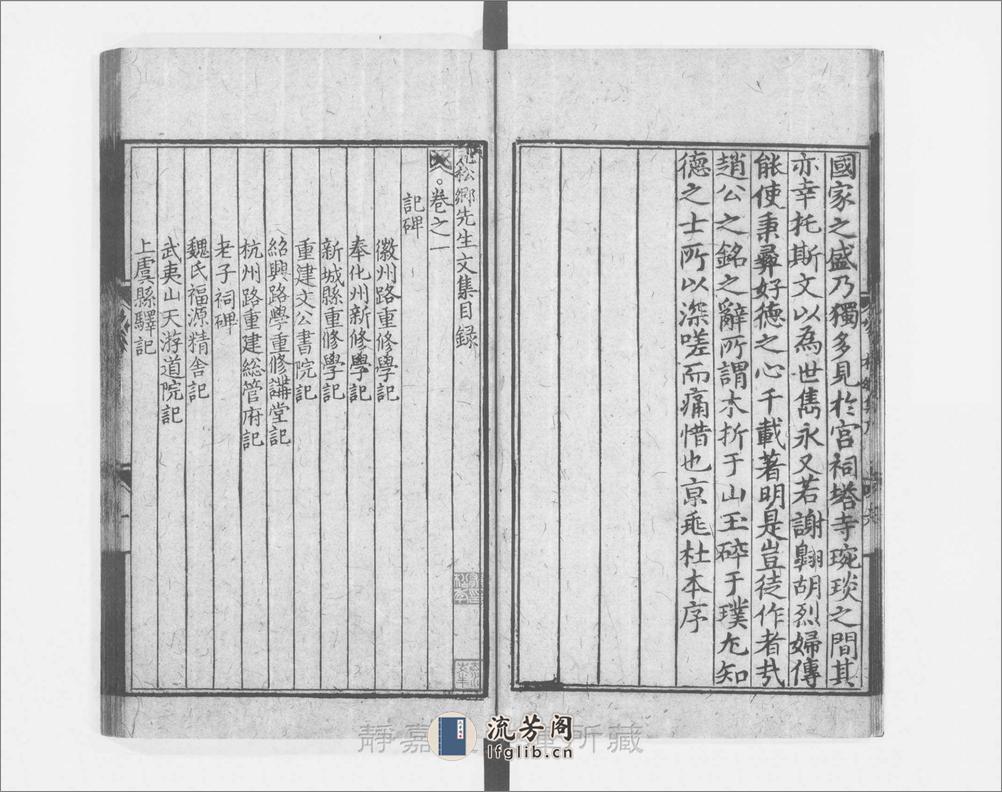 國家之盛乃獨多見於宮祠塔寺琬琰之間其
亦幸托斯文以為世雋永又若謝翱胡烈婦傳
能使秉彞好德之心千載著明是豈徒作者㢤
趙公之銘之辭所謂木折于山玉碎于璞尢知
德之士所以深嗟而痛惜也京兆杜本序
松鄉先生文集目録
卷之一
記碑
徽州路重修學記
奉化州新修學記
新城縣重修學記
重建文公書院記
紹興路學重修講堂記
杭州路重建総管府記
老子祠碑
魏氏福源精舍記
武夷山天游道院記
上虞縣驛記
靜嘉 所藏
流芳阁
lfglib.cn